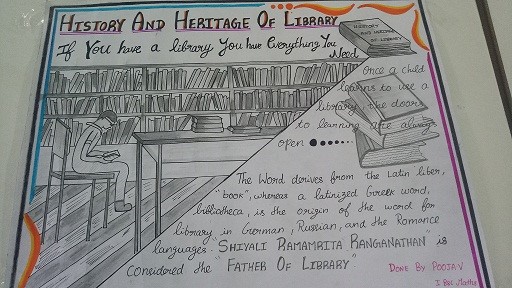 HISTORY AND HERITAGE OF LIBRARY
If You have a library You have Everything You
Need
HISTORY
AND HERITAGE
OF LIBRARY
Once a child
learns to use a
library, the doors
to learning are always
open
The Word derives from the Latin liber,
"book", whereas a latinized Greek word,
bibliotheca, is the origin of the word for
library in German, Russian, and the Romance
languages. "SHIYALI RAMAMRITA RANGANATHAN" is
considered the "FATHER OF LIBRARY"
DONE BY POOJA.V
I BSc. Maths